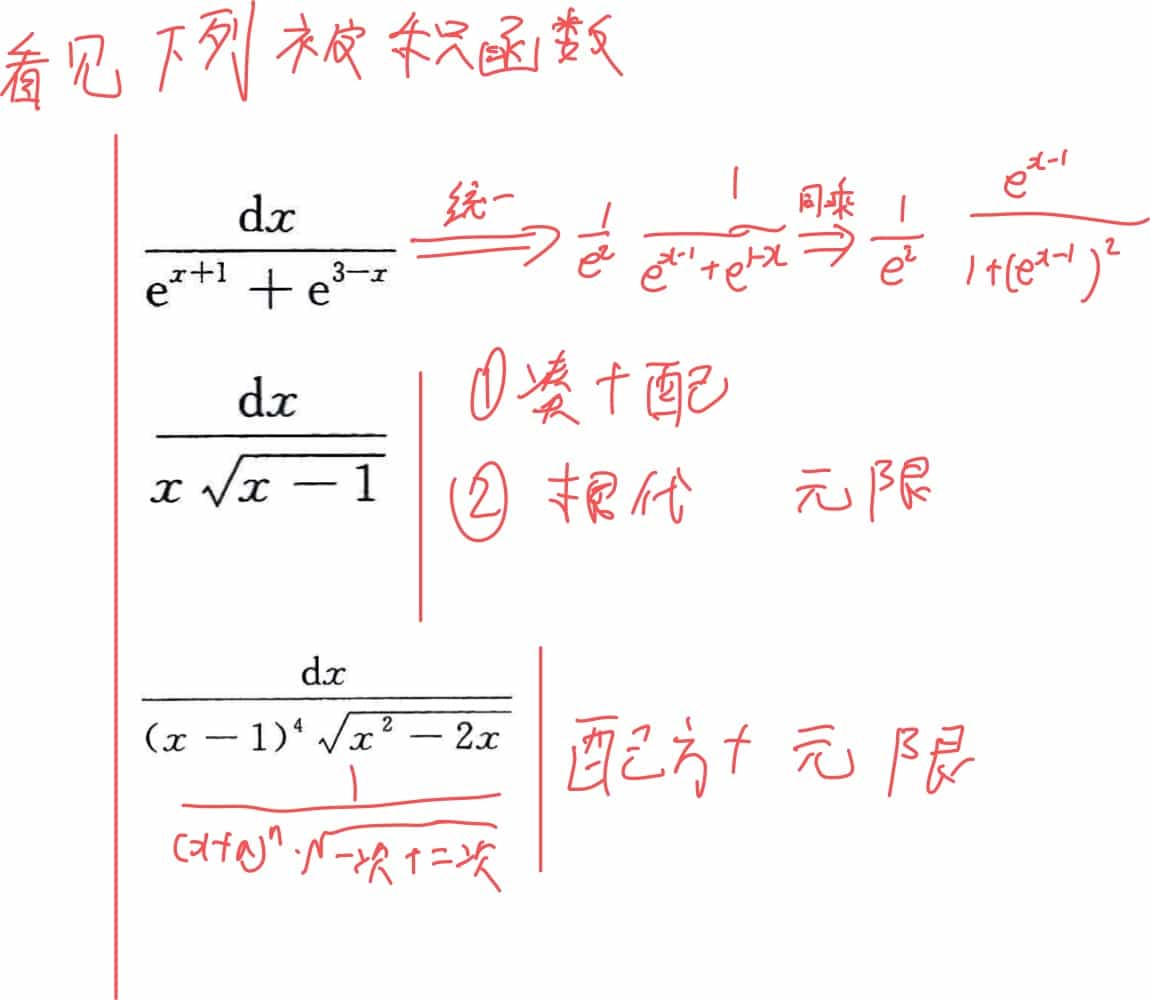 看见下列被积函数
dx/(e^{x+1} + e^{3-x}) 统一 ⟹ 1/e^2 · 1/(e^{x-1}+e^{1-x}) 同乘 ⟹ 1/e^2 · e^{x-1}/(1+(e^{x-1})^2)
dx/(x√(x-1))
①凑+配
②根代 元限
dx/((x-1)^4 √(x^2-2x))
1/((x+a)^n·√(一次+二次))
配方+元限